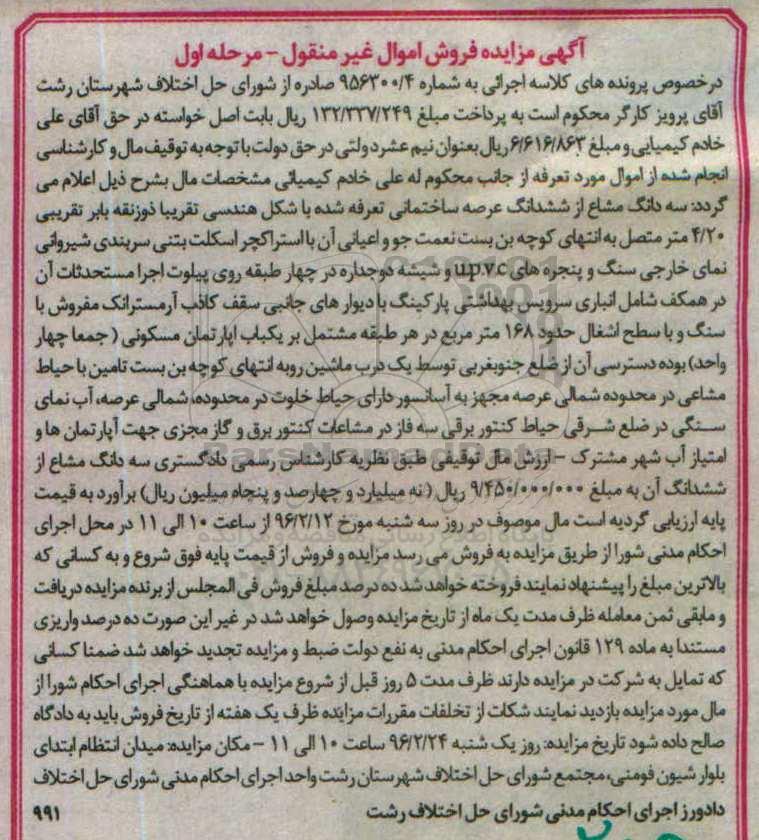 آگهی مزایده فروش اموال غیر منقول - مرحله اول
درخصوص پرونده های کلاسه اجرائی به شماره ۹۵۶۳۰۰/۴ صادره از شورای حل اختلاف شهرستان رشت
آقای پرویز کارگر محکوم است به پرداخت مبلغ ۱۳۲/۳۳۷/۲۴۹ ریال بابت اصل خواسته در حق آقای علی
خادم کیمیایی و مبلغ ۶/۶۱۶/۸۶۳ ریال بعنوان نیم عشر دولتی در حق دولت با توجه به توقیف مال و کارشناسی
انجام شده از اموال مورد تعرفه از جانب محکوم له علی خادم کیمیائی مشخصات مال بشرح ذیل اعلام می
گردد: سه دانگ مشاع از ششدانگ عرصه ساختمانی تعرفه شده با شکل هندسی تقریبا ذوزنقه بابر تقریبی
۴/۲۰ متر متصل به انتهای کوچه بن بست نعمت جو و اعیانی آن با استراکچر اسکلت بتنی سربندی شیروانی
نمای خارجی سنگ و پنجره های u.p.v.c و شیشه دوجداره در چهار طبقه روی پیلوت اجرا مستحدثات آن
در همکف شامل انباری سرویس بهداشتی پارکینگ با دیوار های جانبی سقف کاذب آرمسترانک مفروش با
سنگ و با سطح اشغال حدود ۱۶۸ متر مربع در هر طبقه مشتمل بر یکباب اپارتمان مسکونی ( جمعا چهار
واحد) بوده دسترسی آن از ضلع جنوبغربی توسط یک درب ماشین روبه انتهای کوچه بن بست تامین با حیاط
مشاعی در محدوده شمالی عرصه مجهز به آسانسور دارای حیاط خلوت در محدوده، شمالی عرصه، آب نمای
سنگی در ضلع شرقی حیاط کنتور برقی سه فاز در مشاعات کنتور برق و گاز مجزی جهت آپارتمان ها و
امتیاز آب شهر مشترک - ارزش مال توقیفی طبق نظریه کارشناس رسمی دادگستری سه دانگ مشاع از
ششدانگ آن به مبلغ ۹/۴۵۰/۰۰۰/۰۰۰ ریال ( نه میلیارد و چهارصد و پنجاه میلیون ریال) برآورد به قیمت
پایه ارزیابی گردیه است مال موصوف در روز سه شنبه مورخ ۹۶/۲/۱۲ از ساعت ۱۰ الی ۱۱ در محل اجرای
احکام مدنی شورا از طریق مزایده به فروش می رسد مزایده و فروش از قیمت پایه فوق شروع و به کسانی که
بالاترین مبلغ را پیشنهاد نمایند فروخته خواهد شد ده درصد مبلغ فروش فی المجلس از برنده مزایده دریافت
و مابقی ثمن معامله ظرف مدت یک ماه از تاریخ مزایده وصول خواهد شد در غیر این صورت ده درصد واریزی
مستندا به ماده ۱۲۹ قانون اجرای احکام مدنی به نفع دولت ضبط و مزایده تجدید خواهد شد ضمنا کسانی
که تمایل به شرکت در مزایده دارند ظرف مدت ۵ روز قبل از شروع مزایده با هماهنگی اجرای احکام شورا از
مال مورد مزایده بازدید نمایند شکات از تخلفات مقررات مزایده ظرف یک هفته از تاریخ فروش باید به دادگاه
صالح داده شود تاریخ مزایده: روز یک شنبه ۹۶/۲/۲۴ ساعت ۱۰ الی ۱۱ - مکان مزایده: میدان انتظام ابتدای
بلوار شیون فومنی، مجتمع شورای حل اختلاف شهرستان رشت واحد اجرای احکام مدنی شورای حل اختلاف
دادورز اجرای احکام مدنی شورای حل اختلاف رشت ۹۹۱